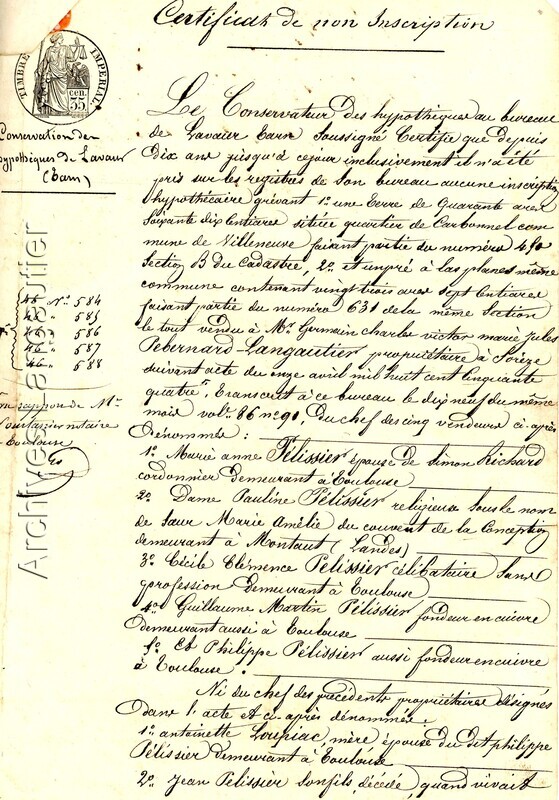 Certificat de non Inscription
TIMBRE IMPERIAL
35 cen.
Conservation des
hypothèques de Lavaur
(Tarn)
Le Conservateur des hypothèques au bureau
de Lavaur Tarn Soussigné Certifie que depuis
Dix ans jusqu'à ce jour inclusivement il n'a été
pris sur les registres de son bureau aucune inscription
hypothécaire grévant 1º une Terre de Quarante ares
Soixante dix Centiares située quartier de Carbonnel com
mune de Villeneuve faisant partie du numéro 450
Section B du Cadastre, 2º et un pré à las planes même
commune contenant vingt trois ares sept Centiares
faisant partie du numéro 631 de la même Section
le tout vendu à Mr Germain Charles victor marie Jules
Pebernard-Langautier propriétaire à Sorèze
suivant acte du onze avril mil huit cent cinquante
quatre, Transcrit à ce bureau le dix neuf du même
mois vol. 86 nº 91, Du chef des cinq vendeurs ci-après
Dénommés :
46 Nº 584
46 " 585
46 " 586
46 " 587
46 " 588
Mr
notaire
Toulouse
1º Marie anne Pélissier épouse de Simon Richard
cordonnier demeurant à Toulouse
2º Dame Pauline Pélissier religieuse Sous le nom
de Sœur Marie Amélie du couvent de la Conception
demeurant à Montaut (Landes)
3º Cécile Clémence Pelissier célibataire Sans
profession demeurant à Toulouse
4º Guillaume Martin Pélissier fondeur en cuivre
demeurant aussi à Toulouse
5º Et Philippe Pélissier aussi fondeur en cuivre
à Toulouse.
Ni du chef des précédents propriétaires désignés
dans l'acte et ci après dénommés.
1º antoinette Loupiac mère épouse du dit philippe
Pélissier demeurant à Toulouse
2º Jean Pelissier son fils, décédé, quand vivait
Archives Langautier